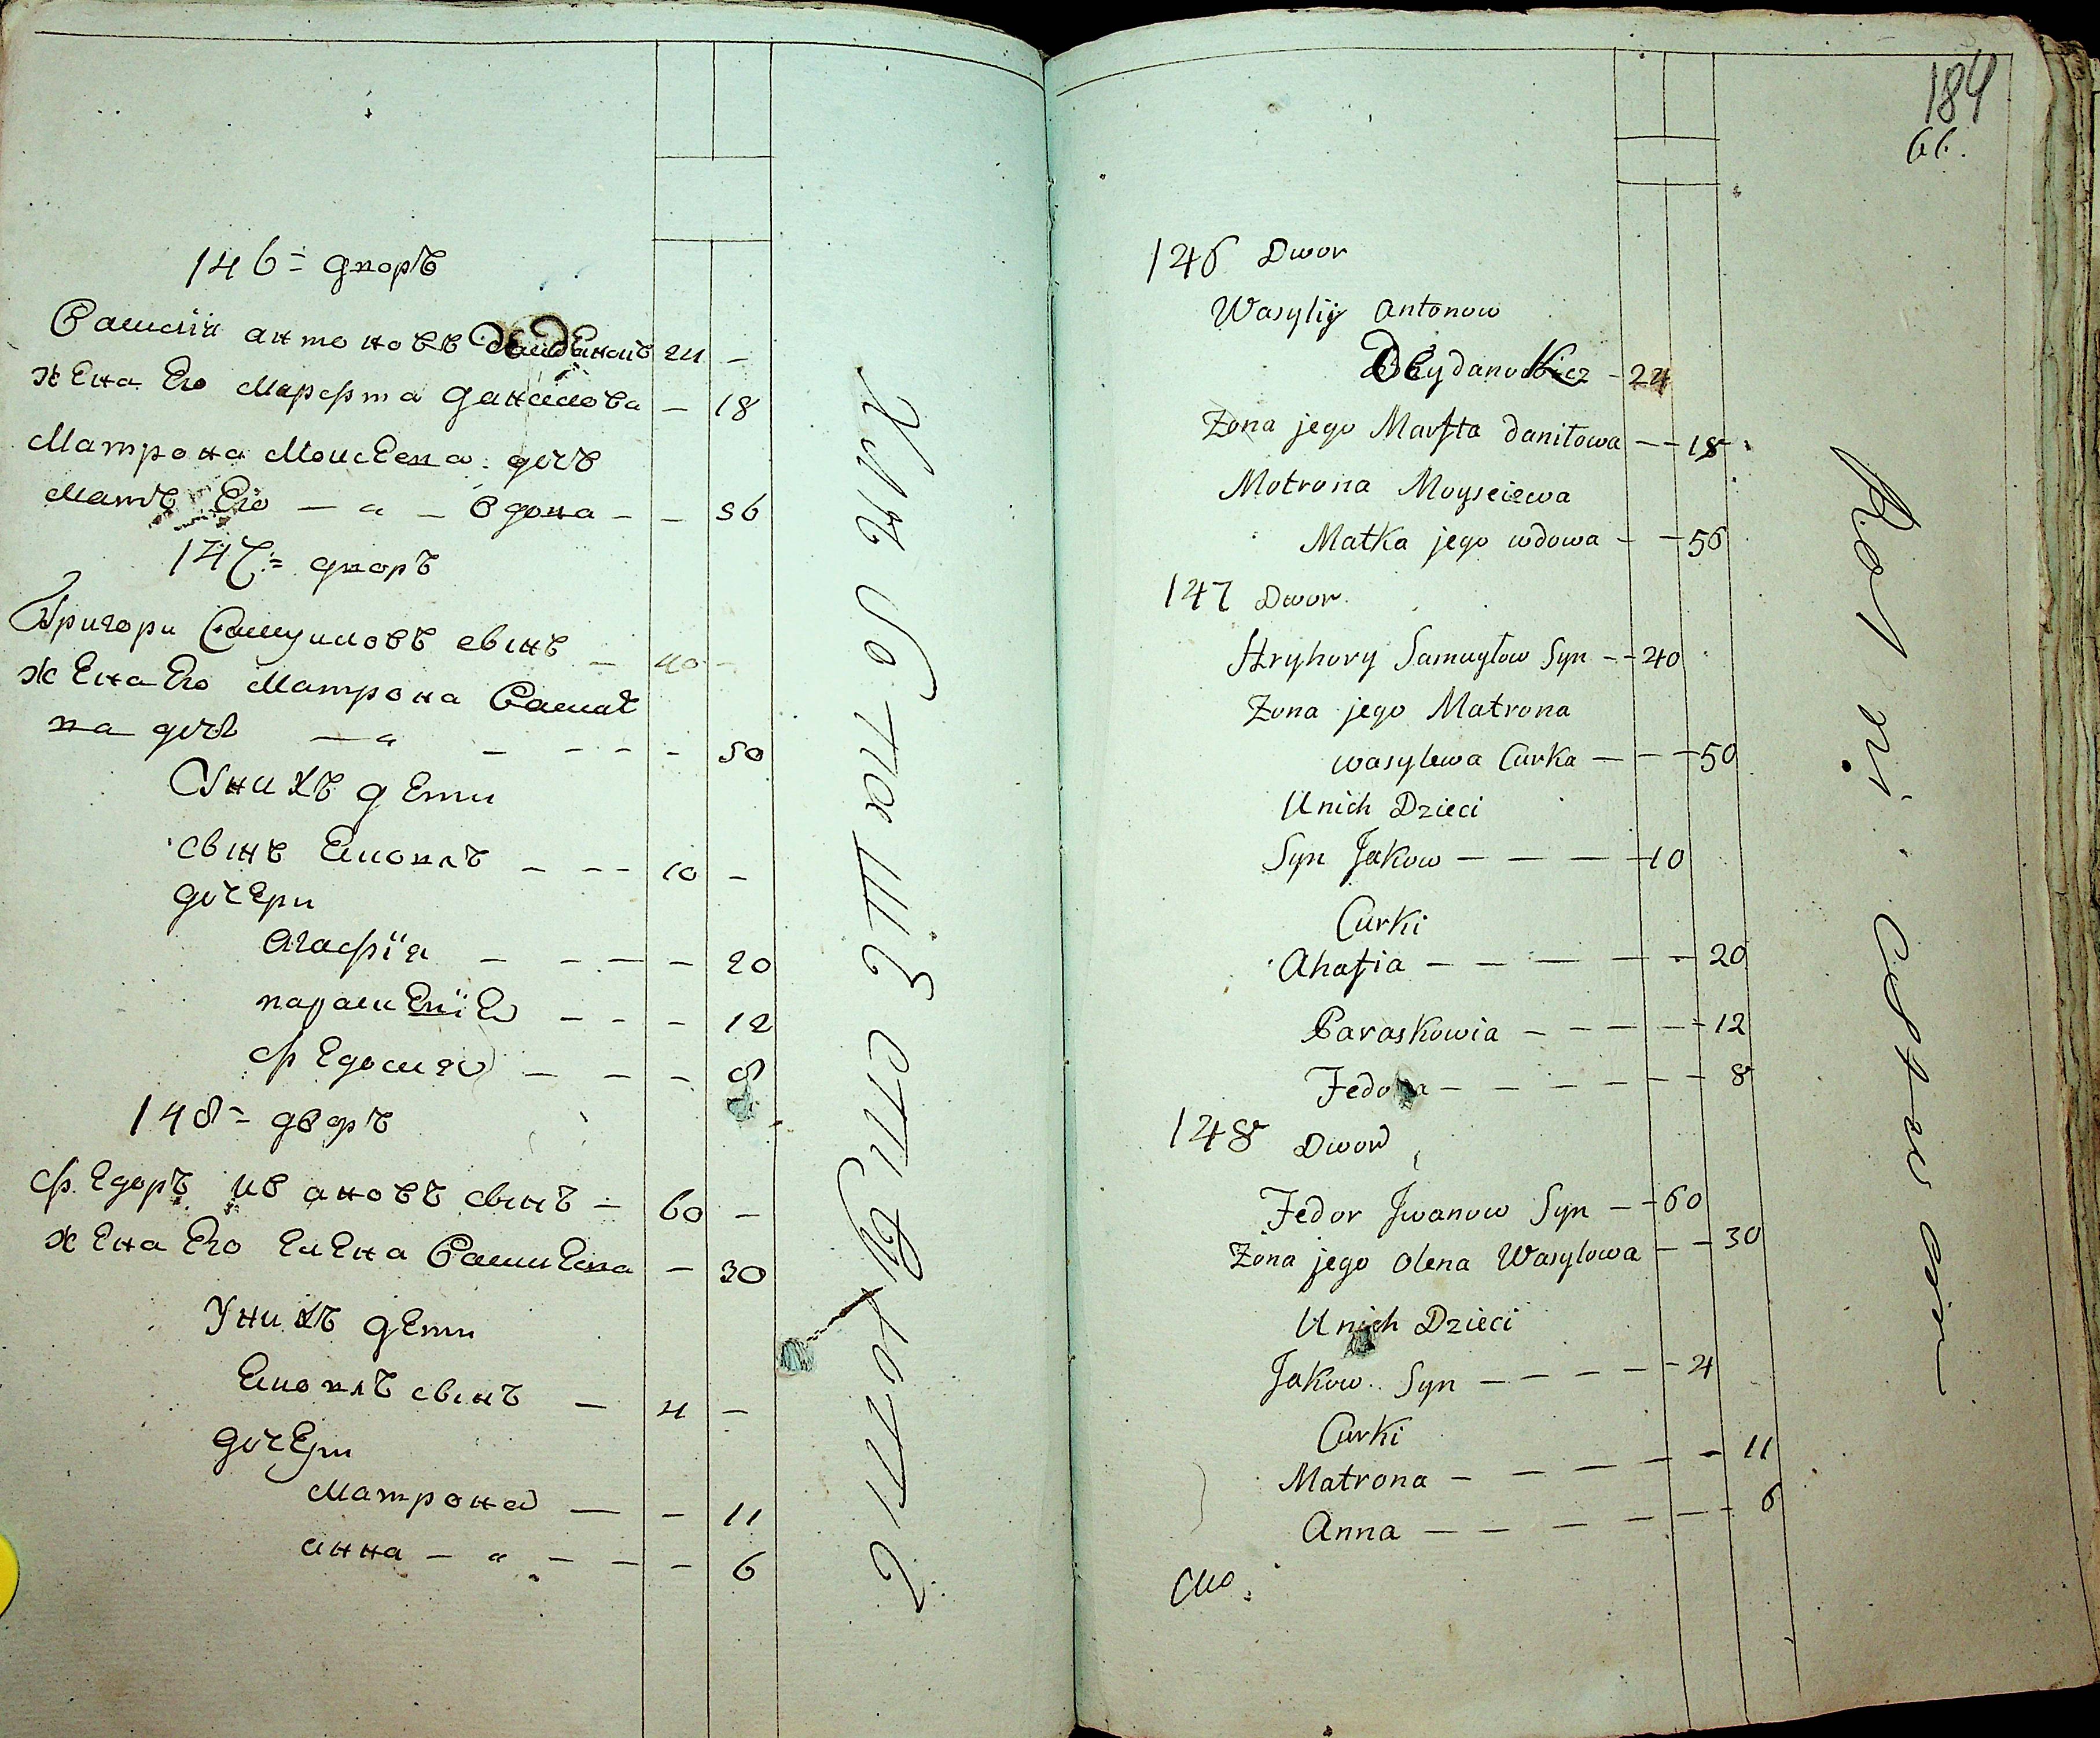 146 = дворъ
Василій антоновъ 24 —
жена Его Марѳта данилова — 18
Матрона Моисеева дочь
Мать Его — „ — вдова — — 56
147 = дворъ
Григори Самуиловъ сынъ — 40 —
жена Его Матрона Василье
ва дочь — „ — — — — 50
Унихъ дети
сынъ Еяковъ — — — 10 —
дочери
агафія — — — — 20
параскевія — — — 12
федосия — — — 8
148 = дворъ
федоръ ивановъ сынъ — 60 —
жена Его Елена Василева — 30
Унихъ дети
Еяковъ сынъ — 4 —
дочери
Матрона — — 11
анна — „ — — — 6
184
66.
146 Dwor
Wasylij Antonow
24
Zona jego Marfta daniłowa — — 18
Motrona Moyseiewa
Matka jego wdowa — — 56
147 Dwor
Hryhory Samuyłow Syn — — 40
Zona jego Matrona
wasylewa Curka — — — 50
Unich Dzieci
Syn Jakow — — — — 10
Curki
Ahafia — — — — — 20
Paraskowia — — — — — 12
— — — — — — 8
148 Dwor
Fedor Jwanow Syn — — 60
Zona jego Olena Wasylowa — — 30
Unich Dzieci
Jakow Syn — — — — — 4
Curki
Matrona — — — — — — 11
Anna — — — — — — 6